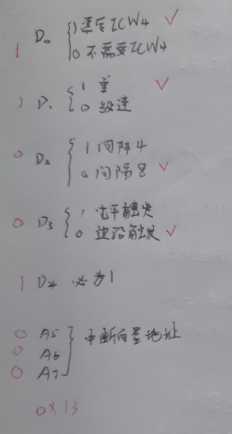 1 D0 { 1 需要ICW4 ✓
0 不需要ICW4
1 D1 { 1 单 ✓
0 级连
0 D2 { 1 间隔4
0 间隔8 ✓
0 D3 { 1 电平触发
0 边沿触发 ✓
1 D4 必为1
0 A5
0 A6 } 中断向量地址
0 A7
0x13